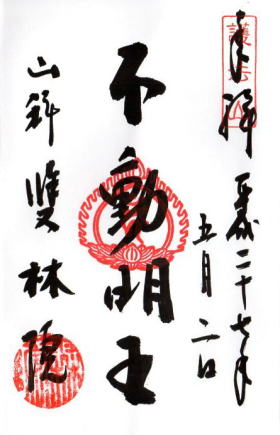 奉拝 平成二十七年
五月二日
不動明王
山科 雙林院